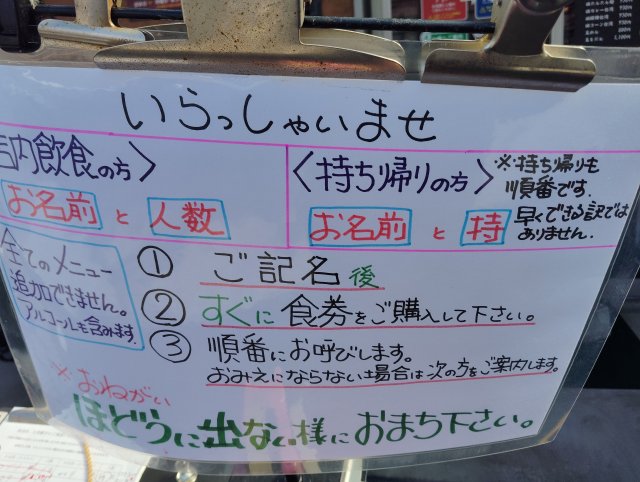 いらっしゃいませ
店内飲食の方〉
お名前 と 人数
〈持ち帰りの方〉
お名前 と 持
※持ち帰りも
順番です.
早くできる訳では
ありません.
全てのメニュー
追加できません。
アルコールも含みます.
① ご記名後
② すぐに食券をご購入して下さい。
③ 順番にお呼びします。
おみえにならない場合は次の方をご案内します。
※おねがい
ほどうに出ない様におまち下さい。